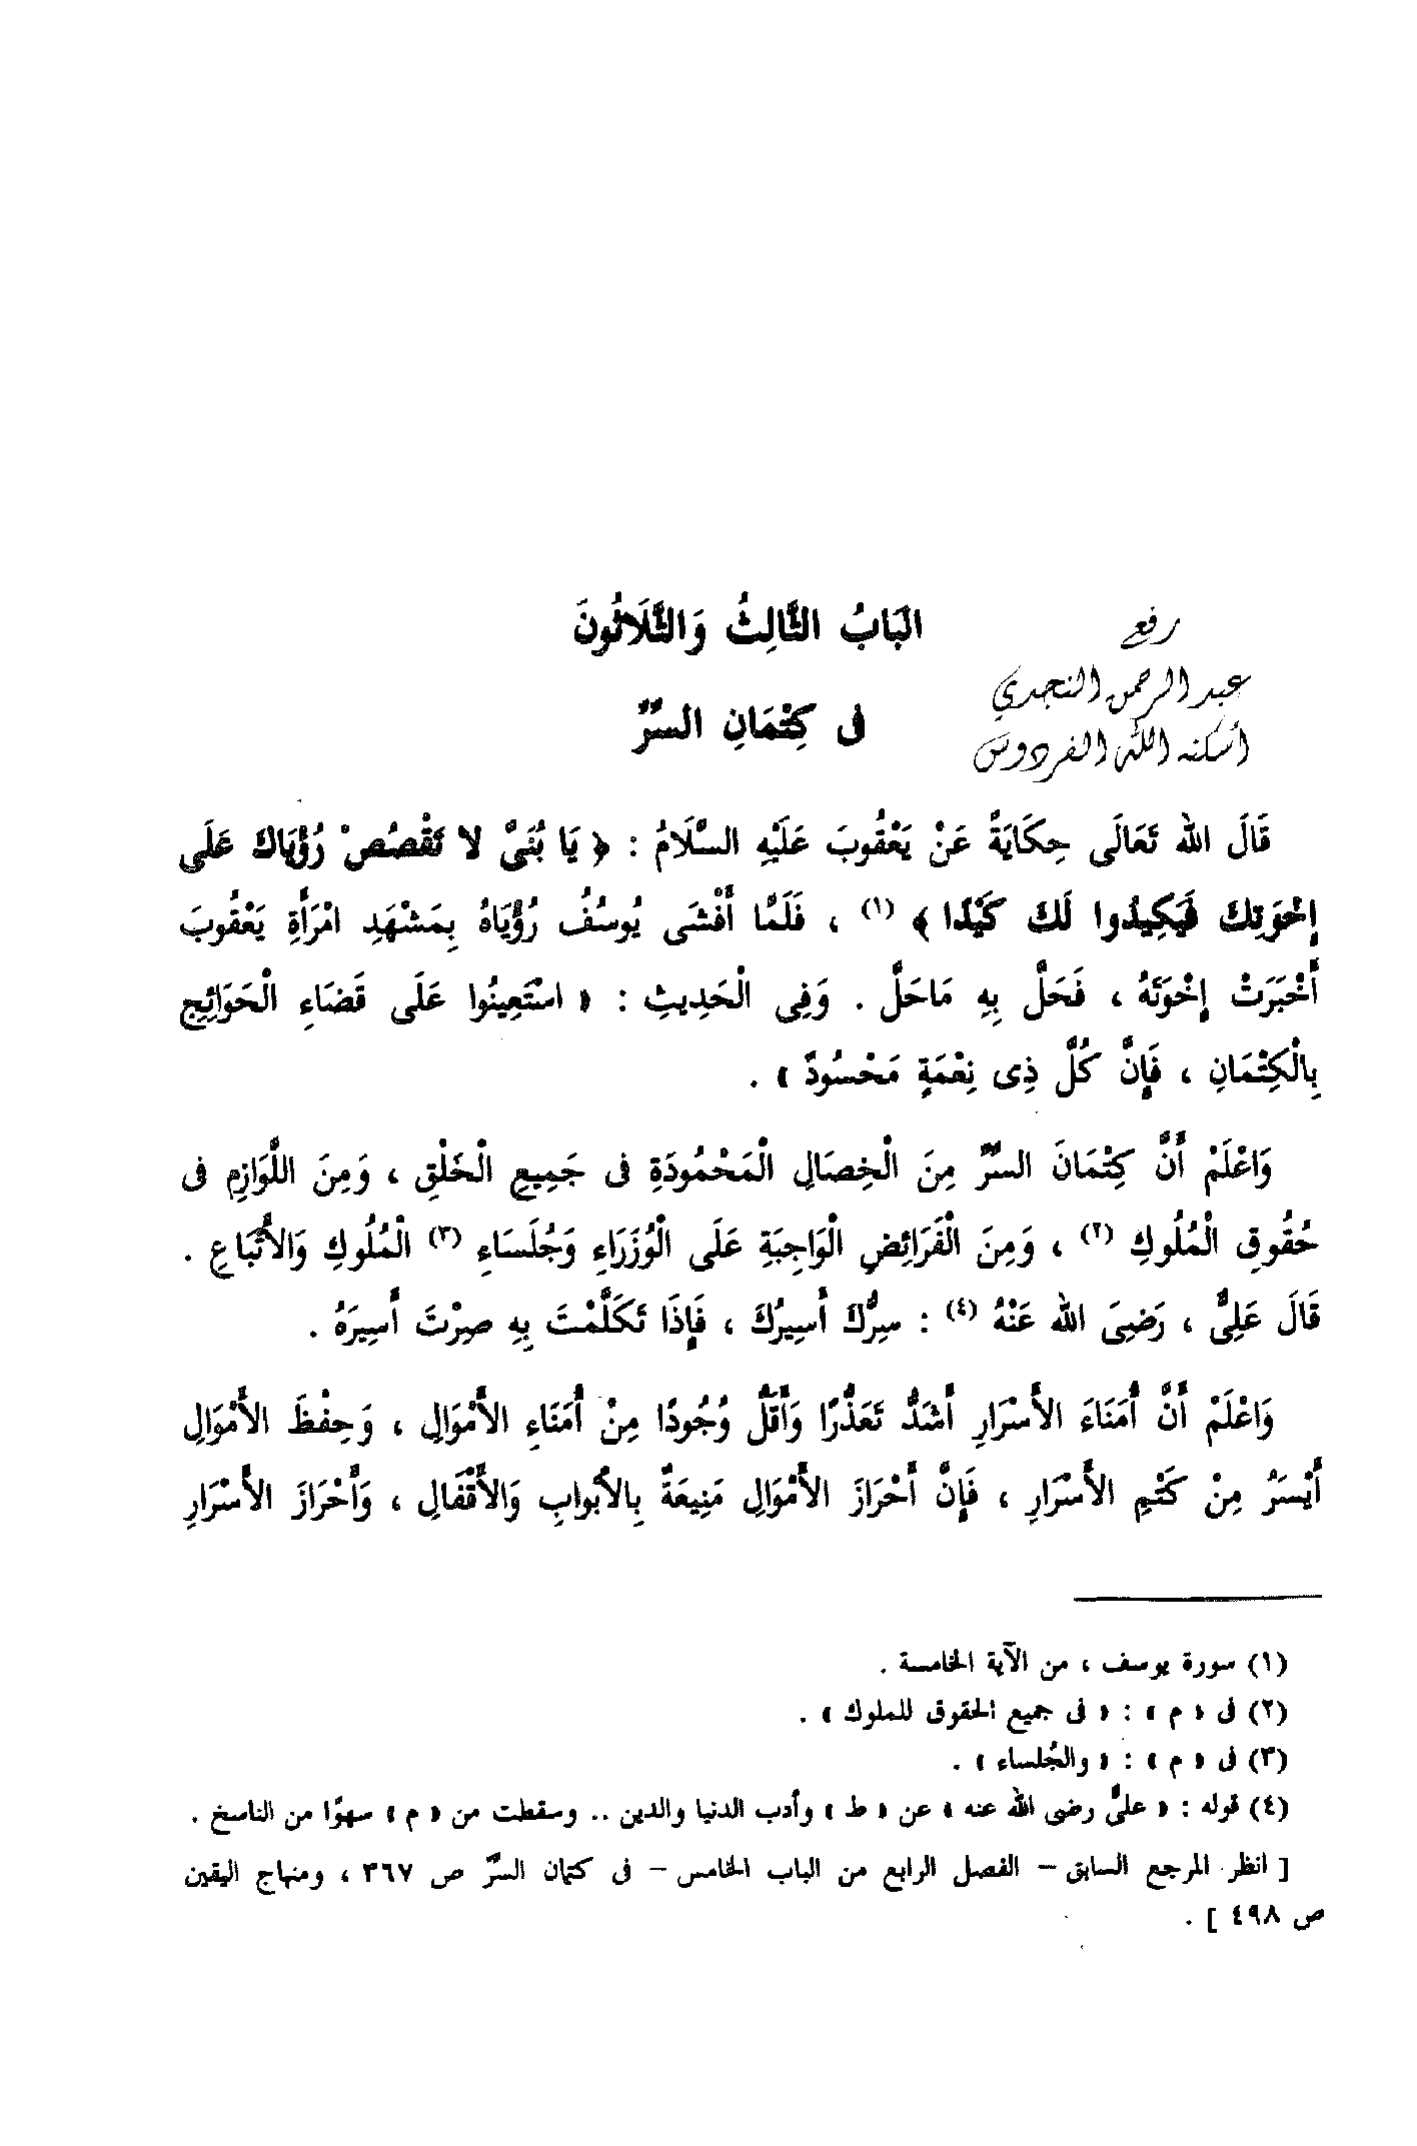 الْبَابُ الثَّالِثُ وَالثَّلَاثُونَ
رفع
عبد الرحمن النجدي
فى كِتْمَانِ السرِّ
أسكنه الله الفردوس
قَالَ الله تَعَالَى حِكَايَةً عَنْ يَعْقُوبَ عَلَيْهِ السَّلَامُ : ﴿ يَا بُنَىَّ لا تَقْصُصْ رُؤْيَاكَ عَلَى
إِخْوَتِكَ فَيَكِيدُوا لَكَ كَيْدًا ﴾ (١) ، فَلَمَّا أَفْشَى يُوسُفُ رُؤْيَاهُ بِمَشْهَدِ امْرَأَةِ يَعْقُوبَ
أَخْبَرَتْ إِخْوَتَهُ ، فَحَلَّ بِهِ مَاحَلَّ . وَفِى الْحَدِيثِ : « اسْتَعِينُوا عَلَى قَضَاءِ الْحَوَائِجِ
بِالْكِتْمَانِ ، فَإِنَّ كُلَّ ذِى نِعْمَةٍ مَحْسُودٌ » .
وَاعْلَمْ أَنَّ كِتْمَانَ السرِّ مِنَ الْخِصَالِ الْمَحْمُودَةِ فى جَمِيعِ الْخَلْقِ ، وَمِنَ اللَّوَازِمِ فى
حُقُوقِ الْمُلُوكِ (٢) ، وَمِنَ الْفَرَائِضِ الْوَاجِبَةِ عَلَى الْوُزَرَاءِ وَجُلَسَاءِ (٣) الْمُلُوكِ وَالأَتْبَاعِ .
قَالَ عَلِىٌّ ، رَضِىَ الله عَنْهُ (٤) : سِرُّكَ أَسِيرُكَ ، فَإِذَا تَكَلَّمْتَ بِهِ صِرْتَ أَسِيرَهُ .
وَاعْلَمْ أَنَّ أُمَنَاءَ الأَسْرَارِ أَشَدُّ تَعَذُّرًا وَأَقَلُّ وُجُودًا مِنْ أُمَنَاءِ الأَمْوَالِ ، وَحِفْظَ الأَمْوَالِ
أَيْسَرُ مِنْ كَتْمِ الأَسْرَارِ ، فَإِنَّ أَحْرَازَ الأَمْوَالِ مَنِيعَةٌ بِالأَبْوابِ وَالأَقْفَالِ ، وَأَحْرَازَ الأَسْرَارِ
(١) سورة يوسف ، من الآية الخامسة .
(٢) فى « م » : « فى جميع الحقوق للملوك » .
(٣) فى « م » : « والجُلساء » .
(٤) قوله : « علىٌّ رضى الله عنه » عن « ط » وأدب الدنيا والدين .. وسقطت من « م » سهوًا من الناسخ .
[ انظر المرجع السابق – الفصل الرابع من الباب الخامس – فى كتمان السرِّ ص ٣٦٧ ، ومنهاج اليقين
ص ٤٩٨ ] .